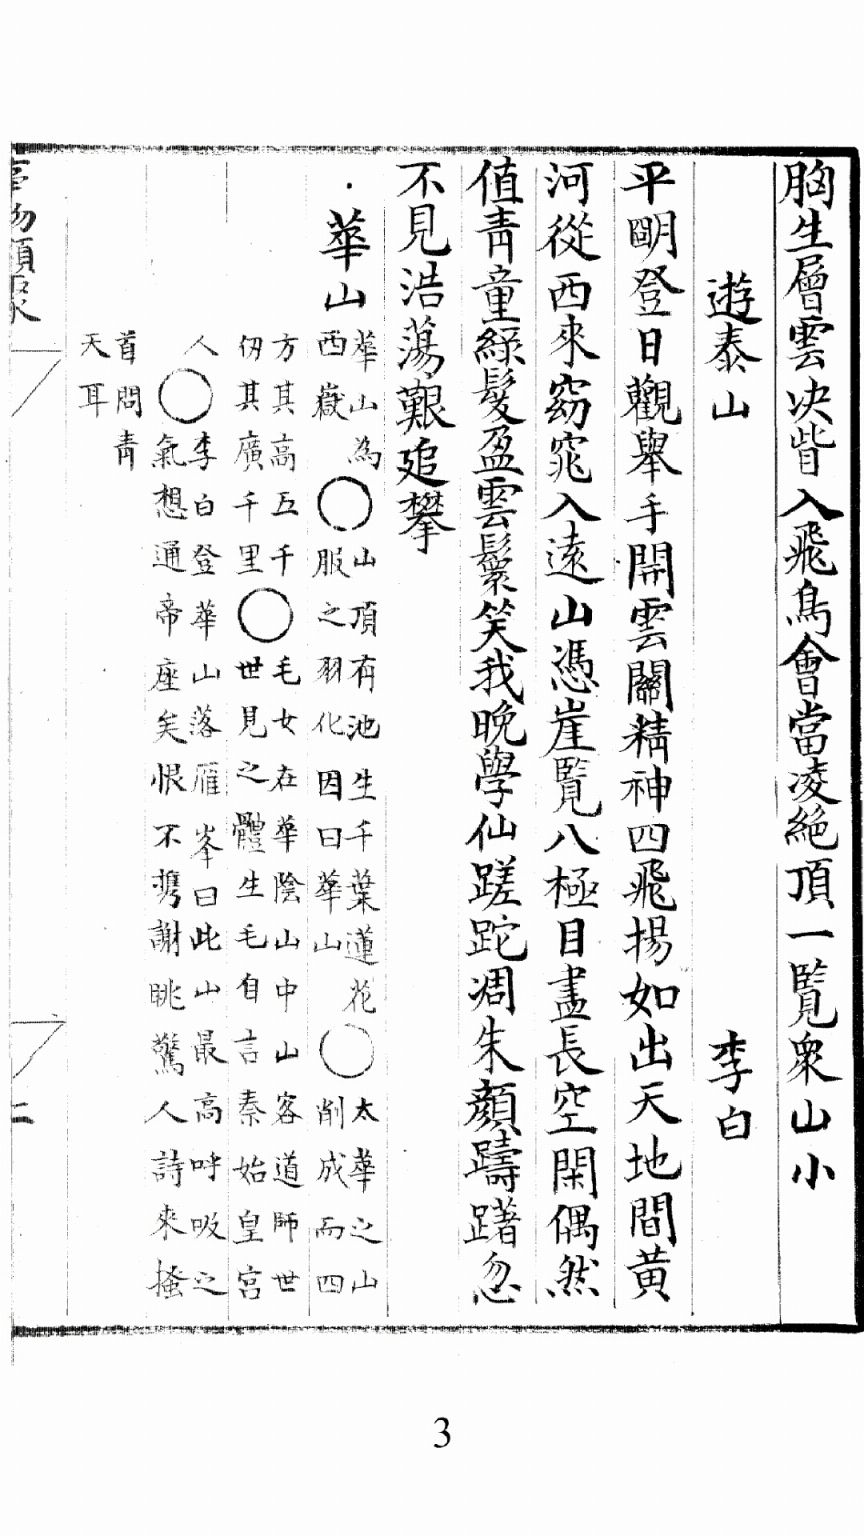 胸生層雲决眥入飛鳥會當凌絶頂一覽衆山小
遊泰山 李白
平明登日觀舉手開雲關精神四飛揚如出天地間黄
河從西來窈窕入遠山憑崖覽八極目盡長空閑偶然
值青童綠髮盈雲鬟笑我晚學仙蹉跎凋朱顔躊躇忽
不見浩蕩艱追攀
華山
華山為
西嶽
○
山頂有池生千葉蓮花
服之羽化因曰華山
○
太華之山
削成而四
方其高五千
仞其廣千里
○
毛女在華陰山中山客道師世
世見之體生毛自言秦始皇宫
人
○
李白登華山落雁峯曰此山最高呼吸之
氣想通帝座矣恨不携謝眺驚人詩來搔
首問青
天耳
二
3